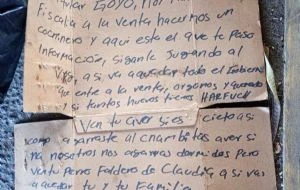 GOYO, Mor
Fiscala a la venta hacemos un
cochinero y aqui esta el que te paso
informacion, siganle Jugando al
Vrg, asi va aquedar todo el Gobier
ente a la venta, organos y
y si tantos huevos tienes HARFUCH
Ven tu aver si es cierto asi
como agarraste al chambitas aver si
na nosotros nos agarras dormidos Pero
ventu Perro Faldero de Claudia, asi vas
a quedar tu y tu Familia